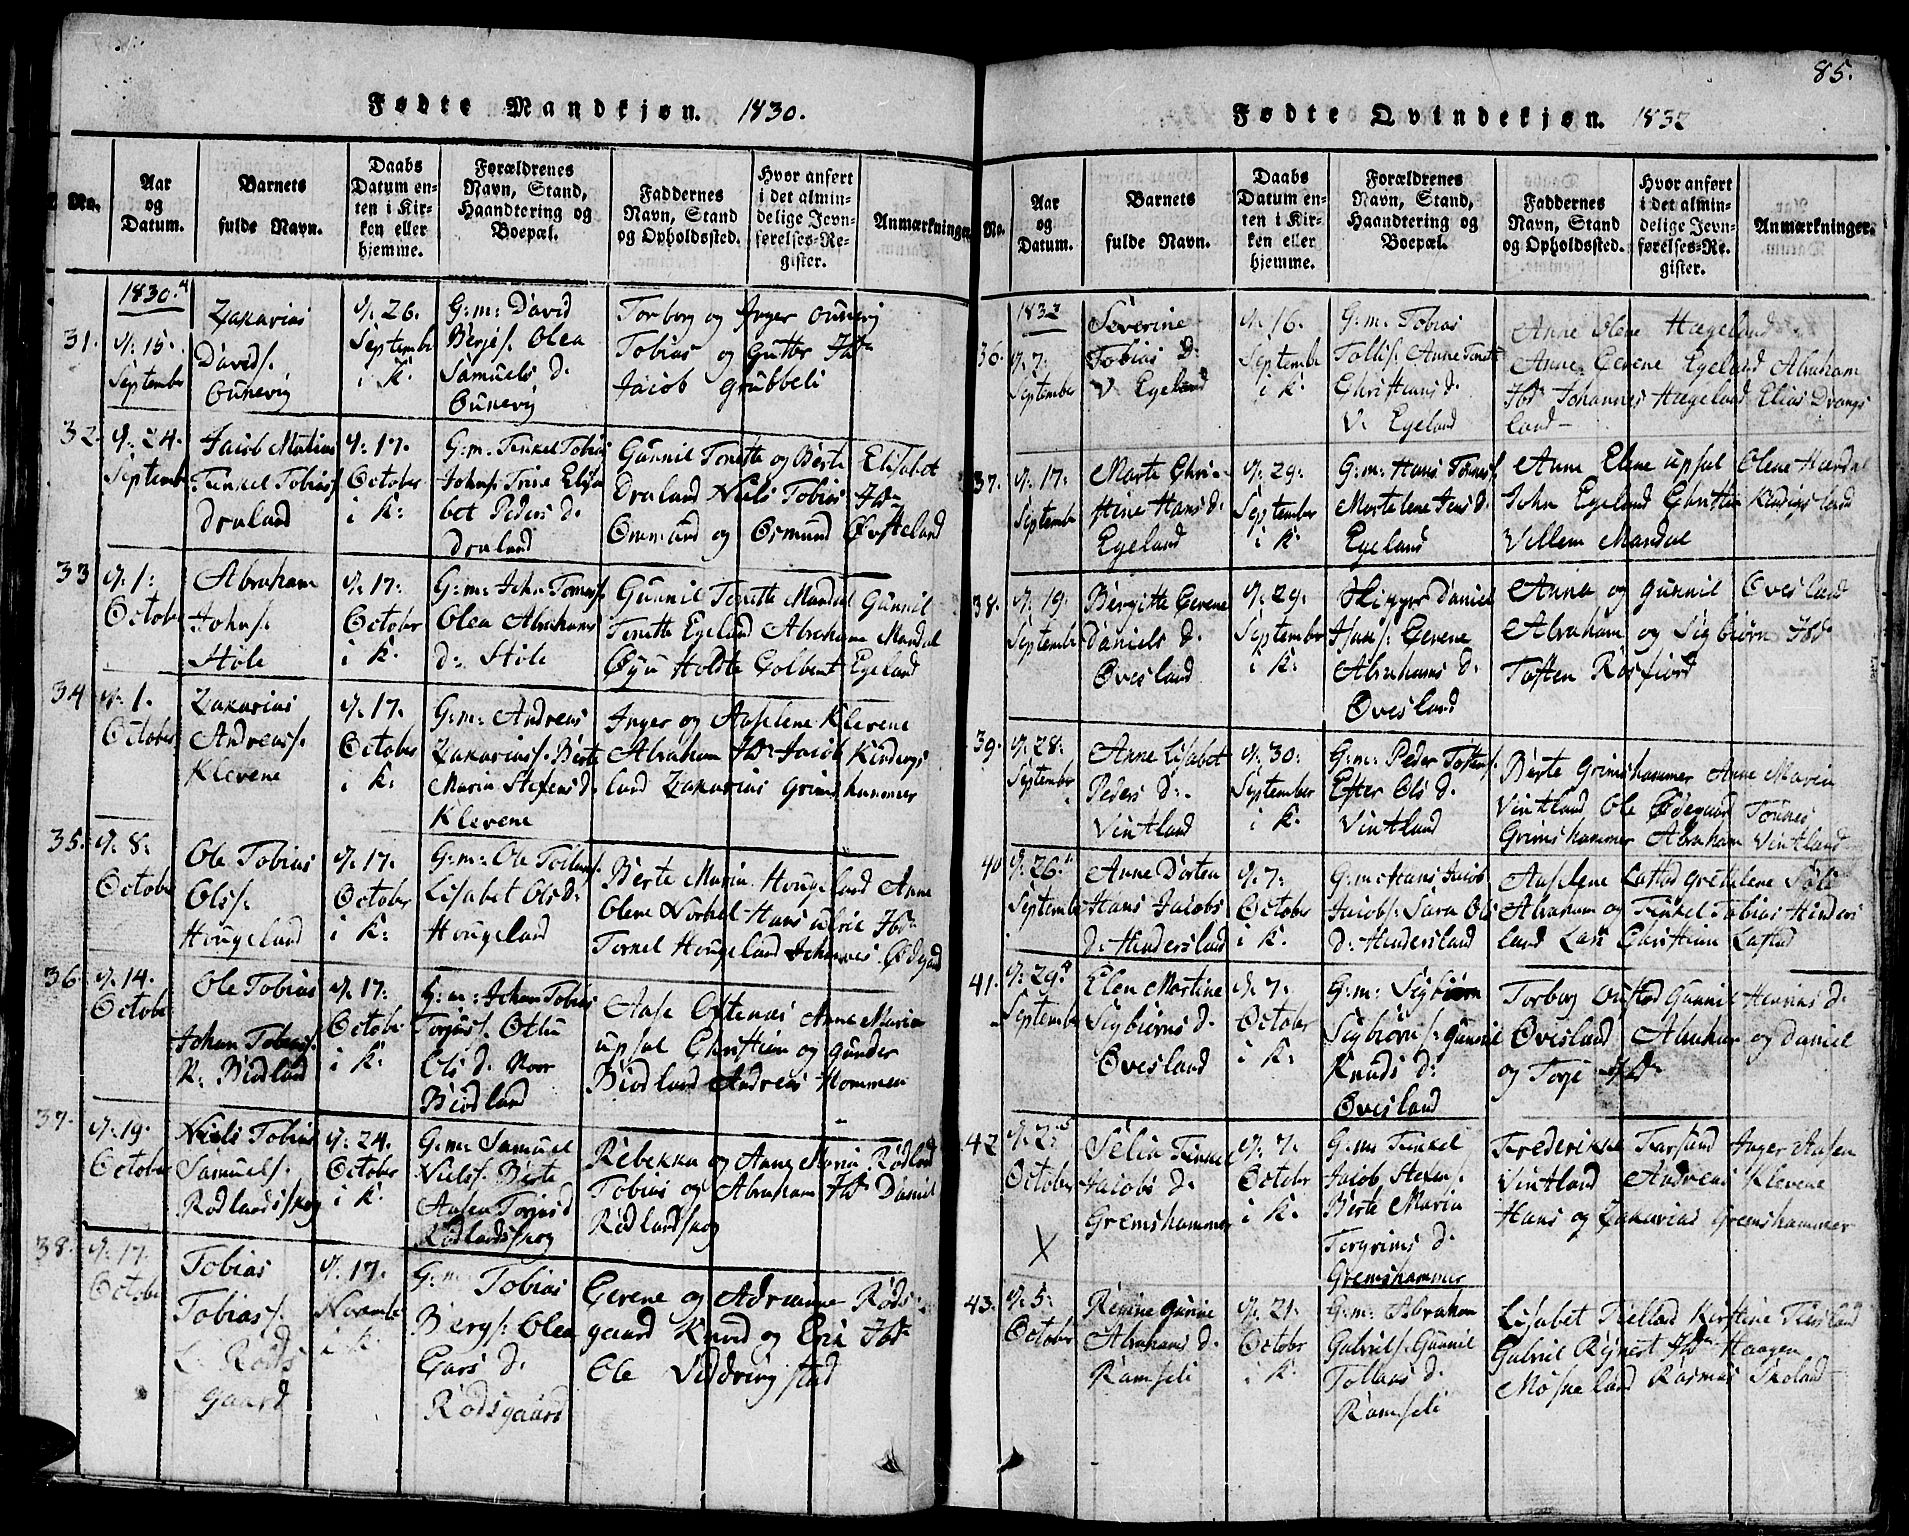 Fødte Mandkjøn. 1830.
No.
Aar
og
Datum.
Barnets
fulde Navn.
Daabs
Datum en-
ten i Kir-
ken eller
hjemme.
Forældrenes
Navn, Stand,
Haandtering og
Boepæl.
Faddernes
Navn, Stand
og Opholdssted.
Hvor anført
i det almin-
delige Jevn-
førelses-Re-
gister.
Anmærkninger.
1830.
31.
15.
September
Zakarias
Davids.
Ounevig
26.
Septemb
i K.
G: m: David
Berjes. Olea
Samuels d.
Ounevig
Torborg og Inger Ounevig
Tobias og Guttor Ibd
Jacob Grubbeli
32.
24.
Septemb
Jacob Matias
Tenkel Tobias
Draland
17.
October
i K:
G: m. Tenkel Tobias
Johns. Trine Elisa
bet Peders d.
Draland
Gunnil Tonette og Berte Elisabet
Draland Niels Tobias Ibd
Ommund og Osmund Øvsteland
33
1.
Octob
Abraham
Johns.
Støle
17.
October
i K.
G: m: John Tomas
Olea Abrahams
d: Støle
Gunnil Tonette Mandal Gunnil
Tonette Egeland Abraham Mandal
Øyu Holdte Golbent Egeland
34
1.
October
Zakarias
Andreas.
Klevene
17.
October
i K:
G: m: Andreas
Zakarias. Berte
Maria Stefens d.
Klevene
Inger og Aaselene Klevene
Abraham Ibd Jacob Kindings
land Zakarias Grimshammer
35.
8:
Octobe
Ole Tobias
Ols.
Hougeland
17.
October
i K:
G: m: Ole Tollaks.
Lisabet Ols d:
Hougeland
Berte Maria Hougeland Anne
Olene Norkel Hans Ulric Ibd
Tornel Hougeland Johannes Ødgard
36
14.
Octobe
Ole Tobias
Johan Tobias.
N. Biodland
17.
Octobe
i K.
G: m: Johan Tobias
Torjus. Otta
Ols d: Noor
Biodland
Aase Oftenæs Anne Maria
Upsal Christian og Gunder
Biodland Andreas Hommen
37.
19.
October
Niels Tobias
Samuels.
Rødlandsskog
24.
October
i K.
G: m: Samuel
Niels. Berte
Aasen Torjus d
Rødlandsskog
Rebekka og Anne Maria Rødland
Tobias og Abraham Ibd Daniel
Rødlandsskog
38.
17.
Octobe
Tobias
Tobias.
L. Røds
gaard
17.
Novemb
i K.
G: m: Tobias
Bergs. Olea
Gars d.
Rødsgaard
Gerene og Adrianne Røds
gaard Knud og Erik Ibd
Ole Viddringstad
85.
Fødte Qvindekjøn. 1832
No.
Aar
og
Datum.
Barnets
fulde Navn.
Daabs
Datum en-
ten i Kir-
ken eller
hjemme.
Forældrenes
Navn, Stand,
Haandtering og
Boepæl.
Faddernes
Navn, Stand
og Opholdssted.
Hvor anført
i det almin-
delige Jevn-
førelses-Re-
gister.
Anmærkninger.
1832
36.
7.
September
Severine
Tobias D.
V. Egeland
16.
September
i K.
G: m. Tobias
Tollis. Anne Tonette
Christians d.
V. Egeland
Anne Olene Hægeland
Anne Gerene Egeland Abraham
Ibd Johannes Hægeland Elias Drangs
land
37.
17.
Septembe
Marte Chri-
stine Hans d.
Egeland
29.
September
i K.
G: m: Hans Tønnes.
Martelene Jens d.
Egeland
Anne Elene Upsal Olene Hærdal
John Egeland Christian Kindingsland
Villem Mandal
38.
19.
September
Bergitte Gerene
Daniels d.
Øvesland
29.
September
i K:
Skipper Daniel
Hans. Gerene
Abrahams d.
Øvesland
Anna og Gunnil Øvesland
Abraham og Sigbiørn Ibd
Tosten Rosfiord
39.
28:
September
Anne Lisabet
Peders d.
Vintland
30.
September
i K.
G: m: Peder Tostens.
Efter Ols d.
Vintland
Berte Grimshammer Anne Maria
Vintland Ole Ødegaard Tønnes
Grimshammer Abraham Vintland
40
26.
September
Anne Dorten
Hans Jacobs
d. Hindersland
7.
October
i K.
G: m: Hans Jacob
Jacobs. Sara Ols
d. Hindersland
Aaselene Lastad Grethelene Støle
Abraham og Tenkel Tobias Hinders
land Lars Christian Lastad
41.
29.
September
Elen Martine
Sigbiørns d.
Øvesland
7.
October
i K.
G: m: Sigbiørn
Sigbiørns. Gunnil
Knuds d:
Øvesland
Torborg Oustad Gunnil Henriks d.
Øvesland Abraham og Daniel
og Torje Ibd
42
2.
October
X
Selia Tenkel
Jacobs d.
Gremshammer
7.
October
i K.
G: m: Tenkel
Jacob Stefens.
Berte Maria
Torgrims d.
Gremshammer
Frederikke Farsund Inger Aasen
Vintland Andreas Klevene
Hans og Zakarias Gremshammer
43.
5:
October
Regine Gurine
Abrahams d.
Ramseli
21.
October
i K.
G: m: Abraham
Gabriels. Gunnil
Tollaks d.
Ramseli
Lisabet Fiellad Kirstine Fiesland
Gabriel Reinert Ibd Haagen
Mosneland Rasmus Skoland